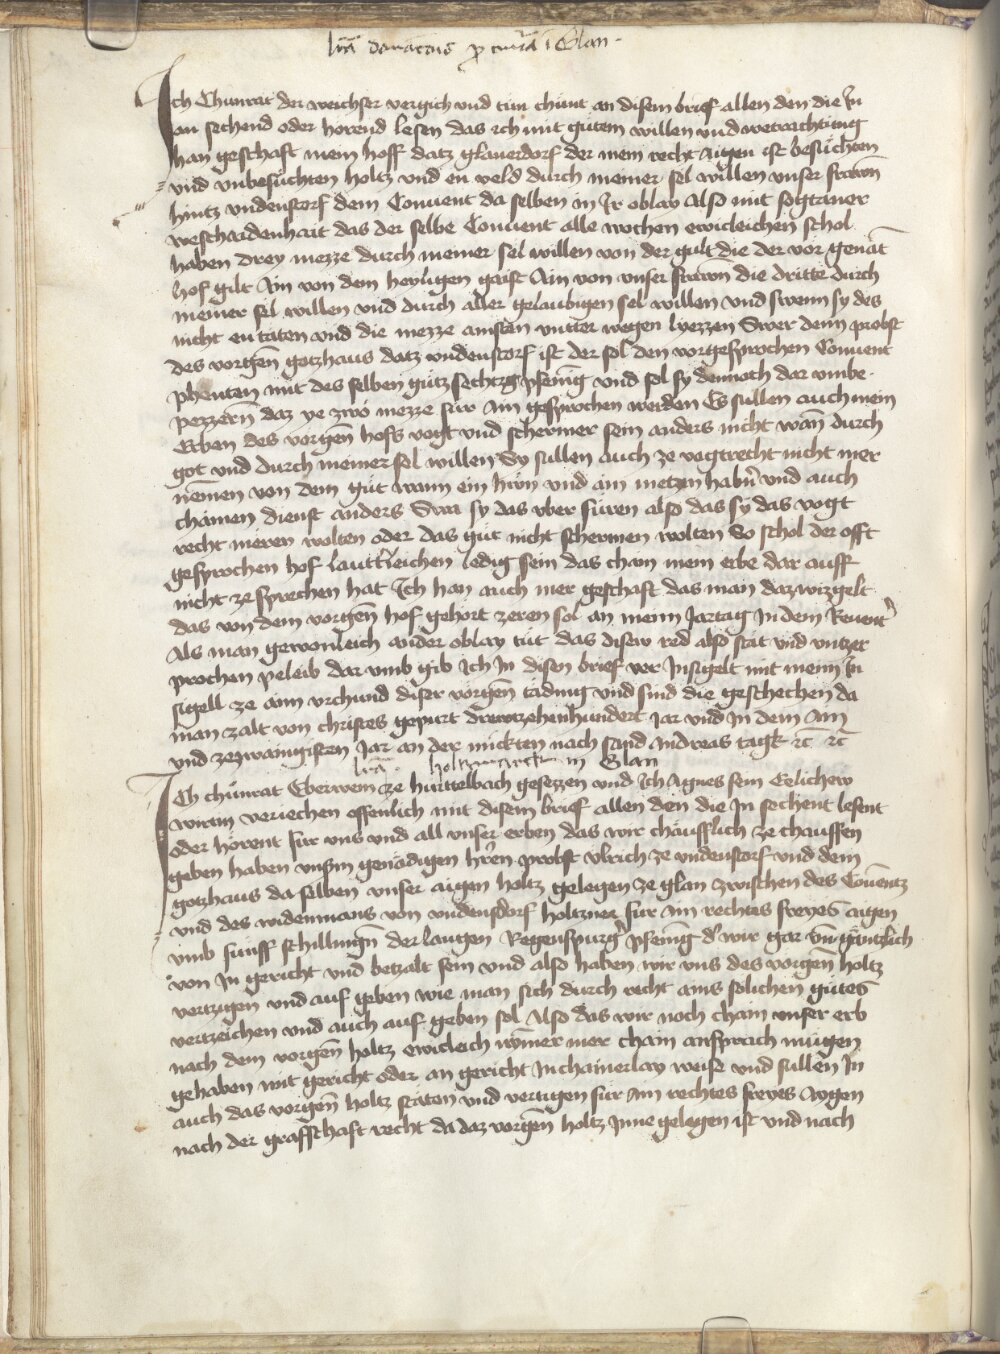 lr̄a donacōis p̱ cur̄ia ī Glan
Ich Chunrat der weichser vergich vnd tun chunt an disem brief allen den die In
an sechend oder horend lesen das ich mit gutem willen vnd wetrachtung
han geschaft mein hoff datz glanerdorf der mein recht aigen ist besuchten
vnd vnbesuchten holtz vnd en veld durch meiner sel willen vnser frawn
hintz vndenstorf dem Conuent da selben in Ir oblay Also mit sogtaner
weschaidenhait das der selbe Conuent alle wochen ewicleichen schol
haben drey mezze durch meiner sel willen von der gult die der vor genāt
hof gilt Ain von dem heyligen gaist Ain von vnser frawn die dritte durch
meiner sel willen vnd durch aller gelaubigen sel willen vnd swenn sy des
nicht en taten vnd die mezze ainsten vntter wegen lyezzen Swer denn probst
des vorgen̄ gotzhaus datz vndenstorf ist der sol den vorgesprochen Conuent
phenten mit des selben gutz sechtzg pfenīg vnd sol sy dennoch dar vmbe
pezzern daz ye zwo mezze fur ain gesprochen werden Es sullen auch mein
Erben des vorgen̄ hofs vogt vnd schermer sein anders nicht wan̄ durch
got vnd durch meiner sel willen Sy sullen auch ze vogtrecht nicht mer
nemen von dem gut wann ein hūn vnd ain metzen habn̄ vnd auch
chainen dienst anders Swa sy das vber furen also das sy das vogt
recht meren wolten oder das gut nicht schermen wolten So schol der offt
gesprochen hof lautterleichen ledig sein das chain mein erbe dar auff
nicht ze sprechen hat Ich han auch mer geschaft das man daz wizgelt
das von dem vorgen̄ hof gehort zeren sol an meinn Jartag In dem Reuent̄
Als man gewonleich ander oblay tut das disew red also stat vnd vntzer
prochen peleib dar vmb gib ich In disen brief vor Insigelt mit meinn In
sigell ze ainn vrchund diser vorgen̄ tading vnd sind die geschechen da
man zalt von christes gepurt drewtzehenhundert Jar vnd In dem Ain
vnd zezwainigisten Jar an der mickten nach sand Andreas tagk ⁊c̄ ⁊c̄
lr̄a holtzmarck in Glan
Ich chunrat Eberwein ze hurttelbach gesezzen vnd ich Agnes sein Eelichew
wirtin veriechen offenlich mit disem brief allen den die In sechent lesent
oder horent fur vns vnd all vnser erben das wir chaufflich ze chauffen
geben haben vnserm genadigen hr̄en probst vlrich ze vndenstorf vnd dem
gotzhaus da selben vnser aigen holtz gelegen ze glan zwischen des Couentz
vnd des widenmans von vndensdorf holtzner fur ain rechtes freyes aigen
vmb funff schillingn̄ der langen Regenspurḡ pfenīg d̄ wir gar vn̄ gantzlich
von In gericht vnd betzalt sein vnd also haben wir vns des vorgen̄ holtz
vertzigen vnd auf geben wie man sich durch recht ains solichen gutes
vertzeichen vnd auch auf geben sol Also das wir noch chain vnser erb
nach dem vorgen̄ holtz ewicleich nȳmer mer chain ansprach mugen
gehaben mit gericht oder an gericht In chainerlay weise vnd sullen In
auch das vorgen̄ holtz staten vnd vertigen fur ain rechtes freyes Aygen
nach der graffschaft recht da daz vorgen̄ holtz Inne gelegen ist vnd nach